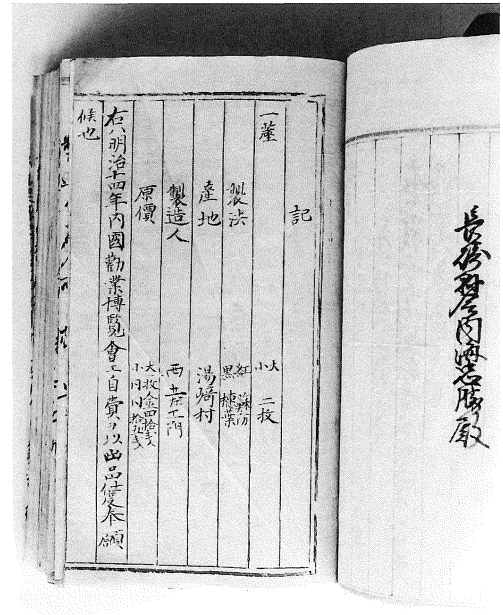 長崎縣令内海忠勝殿
記
一莚 大小 二枚
製法 紅 蘇枋 黒 棟葉
産地 湯﨑村
製造人 西 五左エ門
原價 大 一枚金四拾五戋 小 同 同
右ハ明治十四年内國勸業博覧會エ自費ヲ以出品仕度奉願
候也